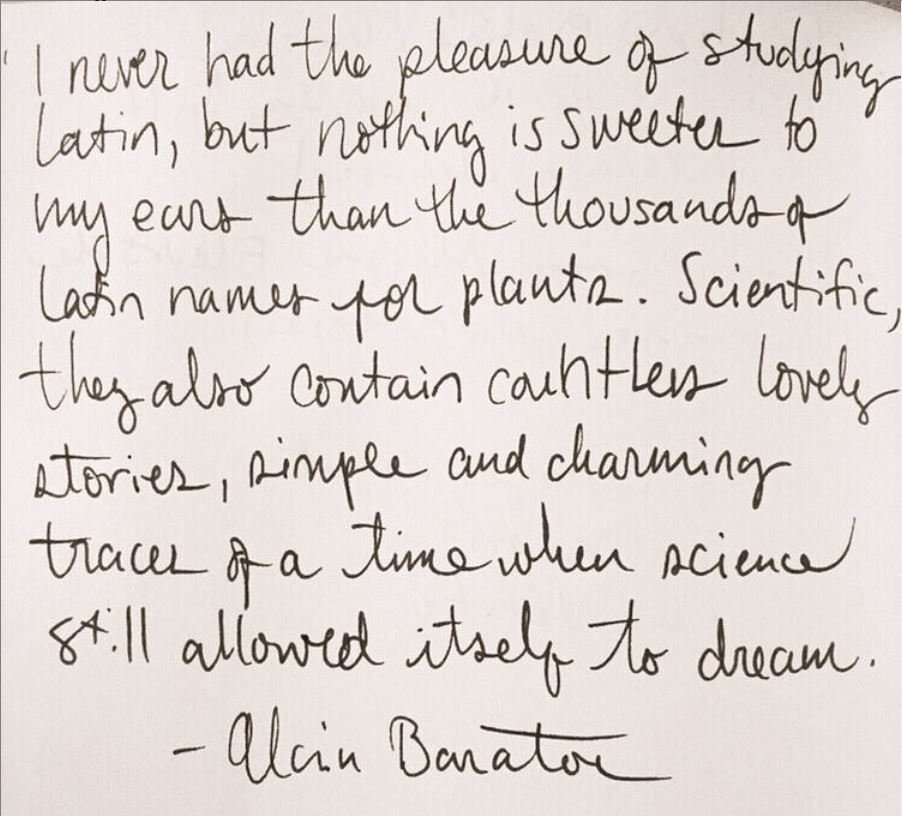 I never had the pleasure of studying
Latin, but nothing is sweeter to
my ears than the thousands of
Latin names for plants. Scientific,
they also contain countless lovely
stories, simple and charming
traces of a time when science
still allowed itself to dream.
- Alain Baraton